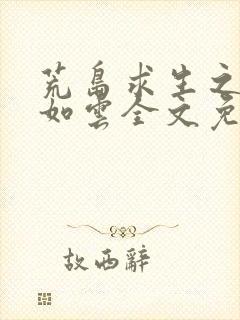 荒島求生之
如雲全文免
故西辭